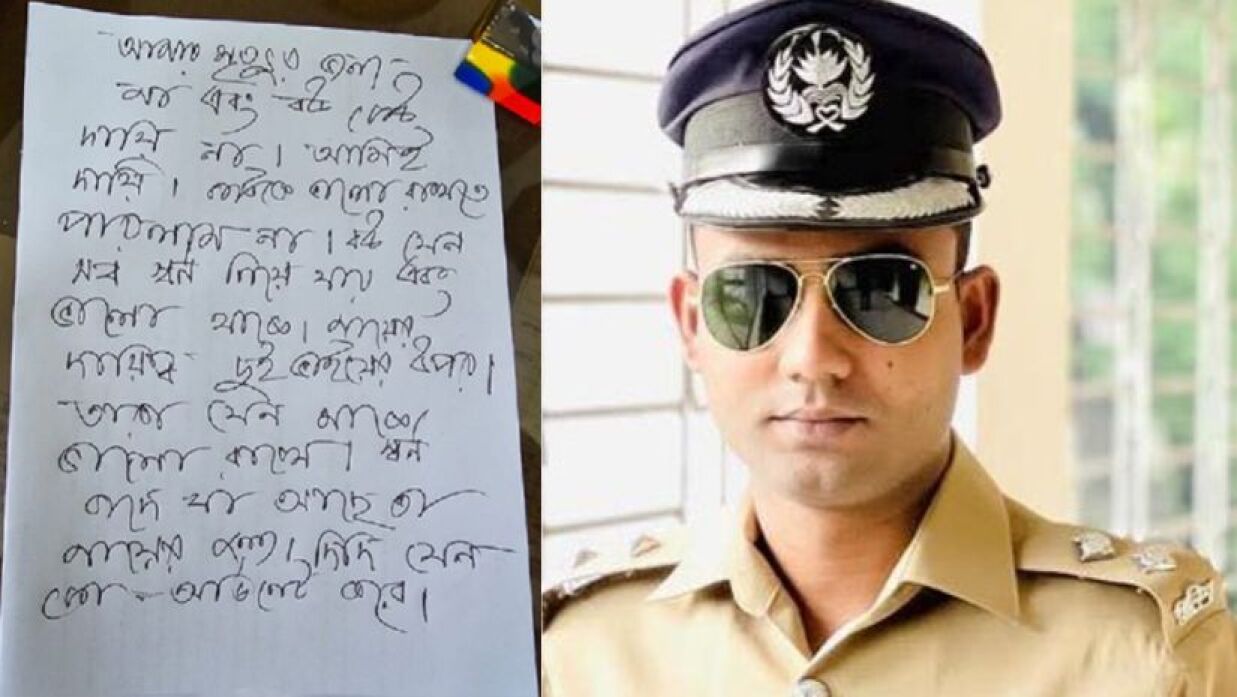 আমার মৃত্যুর জন্য
মা এবং বউ কেউ
দায়ি না। আমিই
দায়ি। কাউকে ভালো রাখতে
পারলাম না। বউ যেন
সব স্বর্ন নিয়ে যায় এবং
ভালো থাকে। মায়ের
দায়িত্ব দুই ভাইয়ের উপর।
তারা যেন মাকে
ভালো রাখে। স্বর্ন
বাদে যা আছে তা
মায়ের জন্য। দিদি যেন
কো-অডিনেট করে।